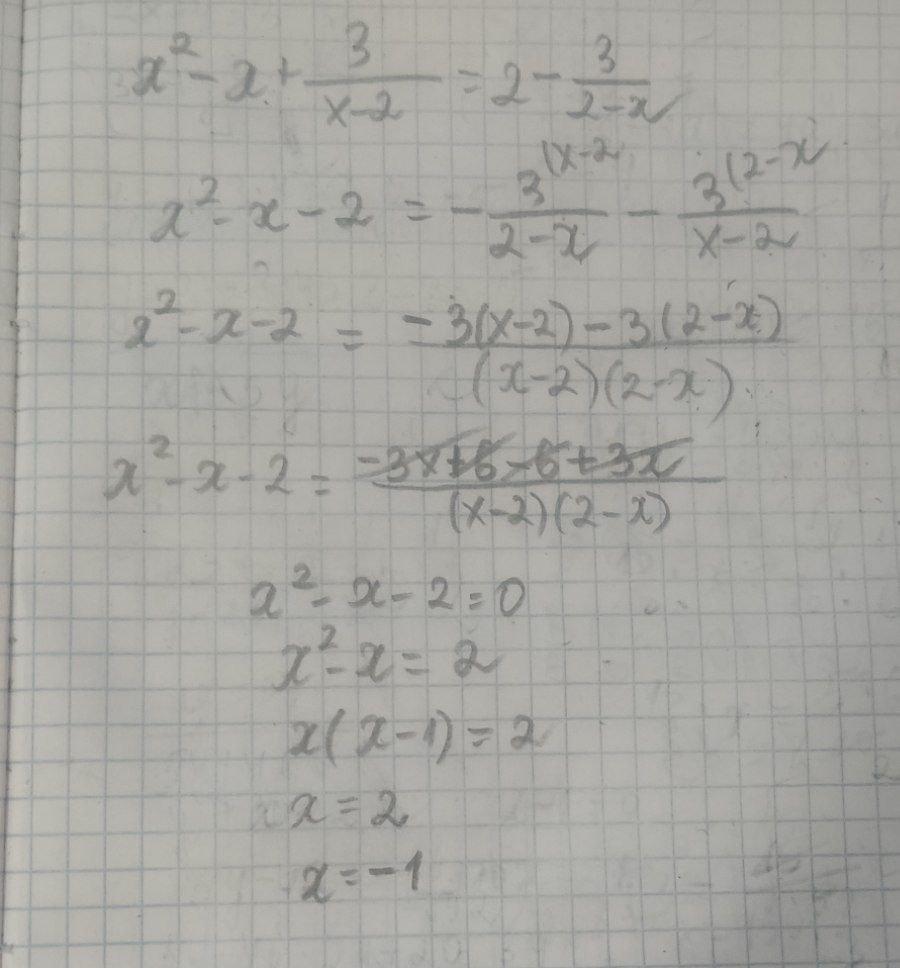 x² - x + 3/(x-2) = 2 - 3/(2-x)
x² - x - 2 = - 3(x-2/(2-x) - 3(2-x/(x-2)
x² - x - 2 = (-3(x-2) - 3(2-x))/((x-2)(2-x))
x² - x - 2 = (-3x+6-6+3x)/((x-2)(2-x))
x² - x - 2 = 0
x² - x = 2
x(x-1) = 2
x = 2
x = -1